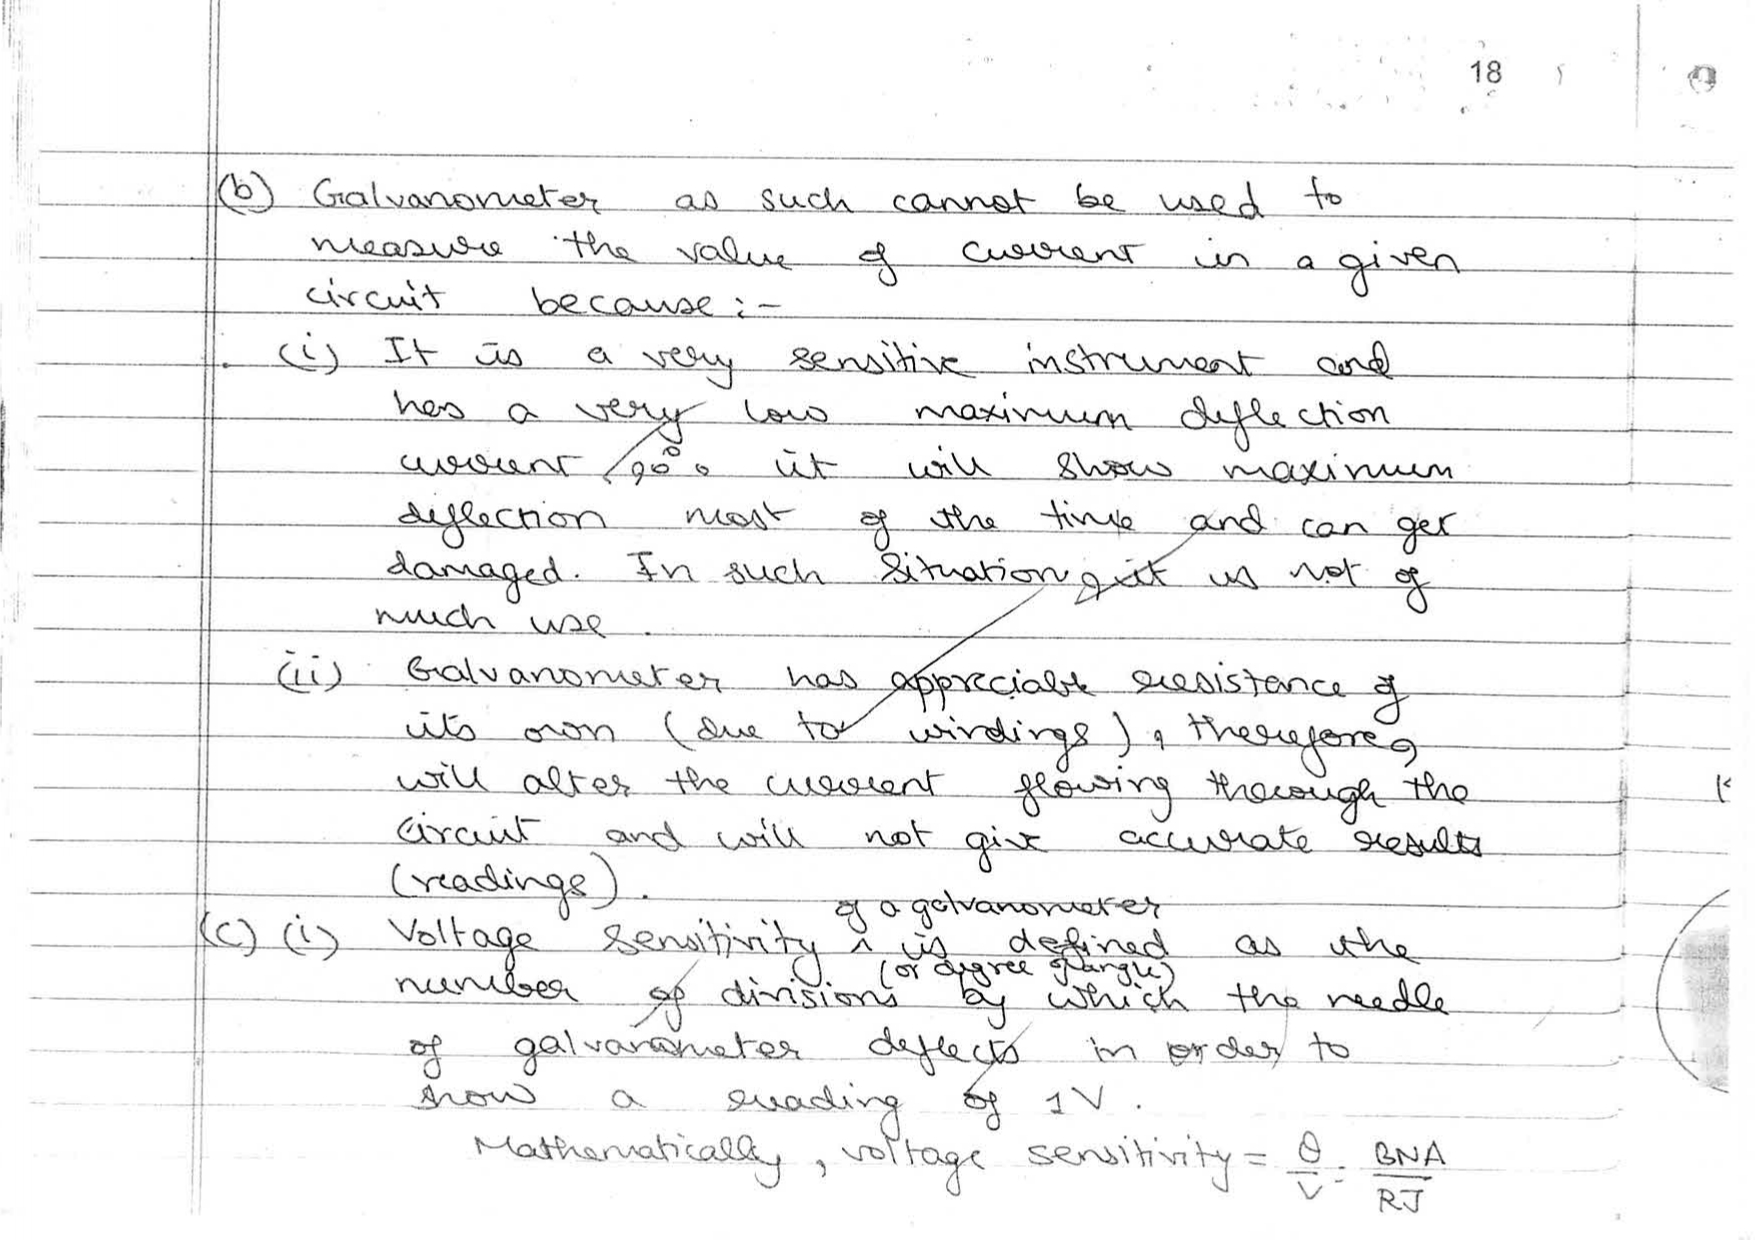 18
(b) Galvanometer as such cannot be used to
measure the value of current in a given
circuit because :-
(i) It is a very sensitive instrument and
has a very low maximum deflection
current, so, it will show maximum
deflection most of the time and can get
damaged. In such situation, it is not of
much use.
(ii) Galvanometer has appreciable resistance of
its own (due to windings), therefore,
will alter the current flowing through the
circuit and will not give accurate results
(readings).
of a galvanometer
(c) (i) Voltage sensitivity ^ is defined as the
(or degree of angle)
number of divisions by which the needle
of galvanometer deflects in order to
show a reading of 1V.
Mathematically, voltage sensitivity = θ/V = BNA/RJ